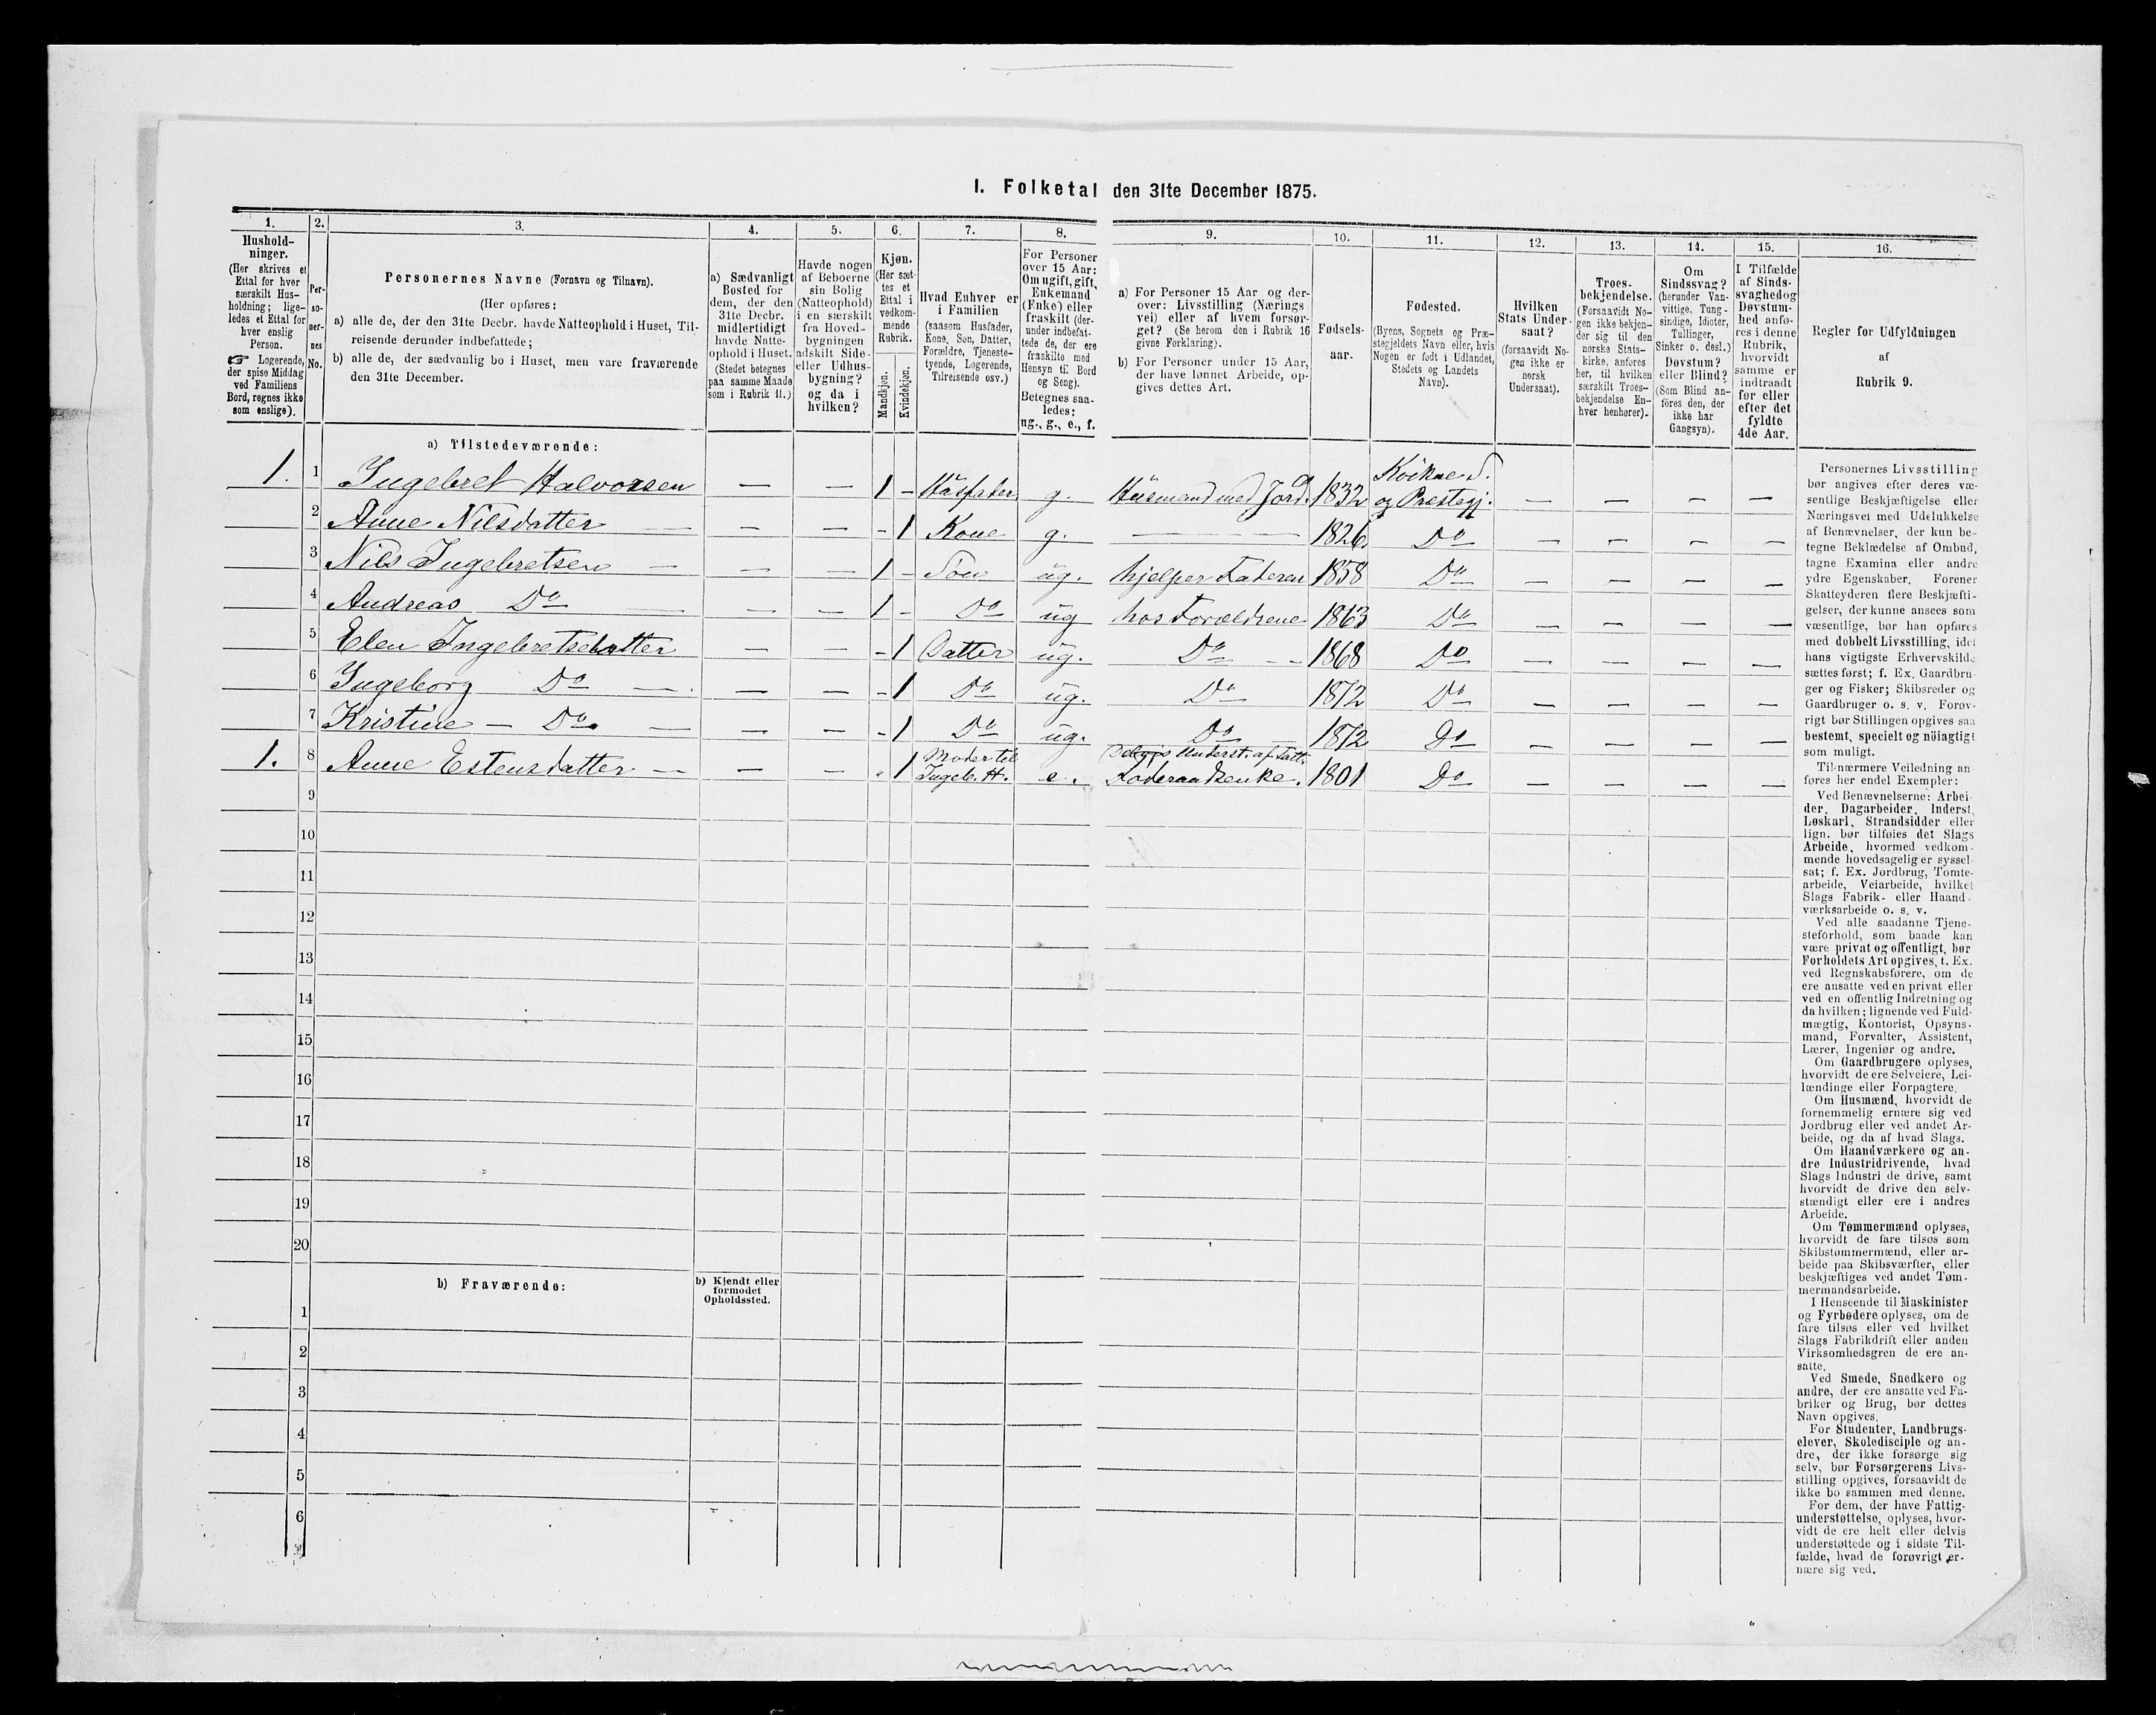 I. Folketal den 31te December 1875.
1.
Hushold-
ninger.
(Her skrives et
Ettal for hver
særskilt Hus-
holdning; lige-
ledes et Ettal for
hver enslig
Person.
☞ Logerende,
der spise Middag
ved Familiens
Bord, regnes ikke
som enslige).
2.
Per-
so-
ner-
nes
No.
3.
Personernes Navne (Fornavn og Tilnavn).
(Her opføres:
a) alle de, der den 31te Decbr. havde Natteophold i Huset, Til-
reisende derunder indbefattede;
b) alle de, der sædvanlig bo i Huset, men vare fraværende
den 31te December.
4.
a) Sædvanligt
Bosted for
dem, der den
31te Decbr.
midlertidigt
havde Natte-
ophold i Huset.
(Stedet betegnes
paa samme Maade
som i Rubrik 11.)
5.
Havde nogen
af Beboerne
sin Bolig
(Natteophold)
i en særskilt
fra Hoved-
bygningen
adskilt Side-
eller Udhus-
bygning?
og da i
hvilken?
6.
Kjøn.
(Her sæt-
tes et
Ettal i
vedkom-
mende
Rubrik.
Mandkjøn.
Kvindekjøn.
7.
Hvad Enhver er
i Familien
(saasom Husfader,
Kone, Søn, Datter,
Forældre, Tjeneste-
tyende, Logerende,
Tilreisende osv.)
8.
For Personer
over 15 Aar:
Om ugift, gift,
Enkemand
(Enke) eller
fraskilt (der-
under indbefat-
tede de, der ere
fraskilte med
Hensyn til Bord
og Seng).
Betegnes saa-
ledes:
ug., g., e., f.
9.
a) For Personer 15 Aar og der-
over: Livsstilling (Nærings
vei) eller af hvem forsør-
get? (Se herom den i Rubrik 16
givne Forklaring).
b) For Personer under 15 Aar,
der have lønnet Arbeide, op-
gives dettes Art.
10.
Fødsels-
aar.
11.
Fødested.
(Byens, Sognets og Præ-
stegjeldets Navn eller, hvis
Nogen er født i Udlandet,
Stedets og Landets
Navn).
12.
Hvilken
Stats Under-
saat?
(forsaavidt No-
gen ikke er
norsk
Undersaat).
13.
Troes-
bekjendelse.
(Forsaavidt No-
gen ikke bekjen-
der sig til den
norske Stats-
kirke, anføres
her, til hvilken
særskilt Troes-
bekjendelse En-
hver henhører).
14.
Om
Sindssvag?
(herunder Van-
vittige, Tung-
sindige, Idioter,
Tullinger,
Sinker o. desl.)
Døvstum?
eller Blind?
(Som Blind an-
føres den, der
ikke har
Gangsyn).
15.
I Tilfælde
af Sinds-
svaghed og
Døvstum-
hed anfø-
res i denne
Rubrik,
hvorvidt
samme er
indtraadt
før eller
efter det
fyldte
4de Aar.
16.
Regler for Udfyldningen
af
Rubrik 9.
a) Tilstedeværende:
1. 1 Ingebret Halvorsen — — 1 – Husfader g. Husmand med Jord. 1832 Kvikne S. og Prestegj. — — — —
2 Anne Nilsdatter — — - 1 Kone g. — 1826 Do — — — —
3 Nils Ingebretsen — — 1 - Søn ug. hjelper Faderen 1858 Do — — — —
4 Andreas Do — — 1 - Do ug hos Forældrene 1863 Do — — — —
5 Elen Ingebretsdatter — — - 1 Datter ug. Do 1868 Do — — — —
6 Ingeborg Do — — - 1 Do ug. Do 1872 Do — — — —
7 Kristine — Do — — - 1 Do ug. Do 1872 Do — — — —
1. 8 Anne Estensdatter — — 1 Moder til Ingeb. H. e. Underst. af Fatt. Foderaadsenke. 1801 Do — — — —
9
10
11
12
13
14
15
16
17
18
19
20
b) Fraværende:
b) Kjendt eller
formodet
Opholdssted.
1
2
3
4
5
6
Personernes Livsstilling
bør angives efter deres væ-
sentlige Beskjæftigelse eller
Næringsvei med Udelukkelse
af Benævnelser, der kun be-
tegne Beklædelse af Ombud,
tagne Examina eller andre
ydre Egenskaber. Forener
Skatteyderen flere Beskjæfti-
gelser, der kunne ansees som
væsentlige, bør han opføres
med dobbelt Livsstilling, idet
hans vigtigste Erhvervskilde
sættes først; f. Ex. Gaardbru-
ger og Fisker; Skibsreder og
Gaardbruger o. s. v. Forøv-
rigt bør Stillingen opgives saa
bestemt, specielt og nöiagtigt
som muligt.
Til nærmere Veiledning an-
føres her endel Exempler:
Ved Benævnelserne: Arbei-
der, Dagarbeider, Inderst,
Løskarl, Strandsidder eller
lign. bør tilføies det Slags
Arbeide, hvormed vedkom-
mende hovedsagelig er syssel-
sat; f. Ex. Jordbrug, Tomte-
arbeide, Veiarbeide, hvilket
Slags Fabrik- eller Haand-
værksarbeide o. s. v.
Ved alle saadanne Tjene-
steforhold, som baade kan
være privat og offentligt, bør
Forholdets Art opgives, f. Ex.
ved Regnskabsførere, om de
ere ansatte ved en privat eller
ved en offentlig Indretning og
da hvilken; lignende ved Fuld-
mægtig, Kontorist, Opsyns-
mand, Forvalter, Assistent,
Lærer, Ingeniør og andre.
Om Gaardbrugere oplyses,
hvorvidt de ere Selveiere, Lei-
lændinge eller Forpagtere.
Om Husmænd, hvorvidt de
fornemmelig ernære sig ved
Jordbrug eller ved andet Ar-
beide, og da af hvad Slags.
Om Haandværkere og an-
dre Industridrivende, hvad
Slags Industri de drive, samt
hvorvidt de drive den selv-
stændigt eller ere i andres
Arbeide.
Om Tømmermænd oplyses,
hvorvidt de fare tilsøs som
Skibstømmermænd, eller ar-
beide paa Skibsværfter, eller
beskjæftiges ved andet Tøm-
mermandsarbeide.
I Henseende til Maskinister
og Fyrbødere oplyses, om de
fare tilsøs eller ved hvilket
Slags Fabrikdrift eller anden
Virksomhedsgren de ere an-
satte.
Ved Smede, Snedkere og
andre, der ere ansatte ved Fa-
briker og Brug, bør dettes
Navn opgives.
For Studenter, Landbrugs-
elever, Skoledisciple og an-
dre, der ikke forsørge sig
selv, bør Forsørgerens Livs-
stilling opgives, forsaavidt de
ikke bo sammen med denne.
For dem, der have Fattig-
understøttelse, oplyses, hvor-
vidt de ere helt eller delvis
understøttede og i sidste Til-
fælde, hvad de forøvrigt er-
nære sig ved.